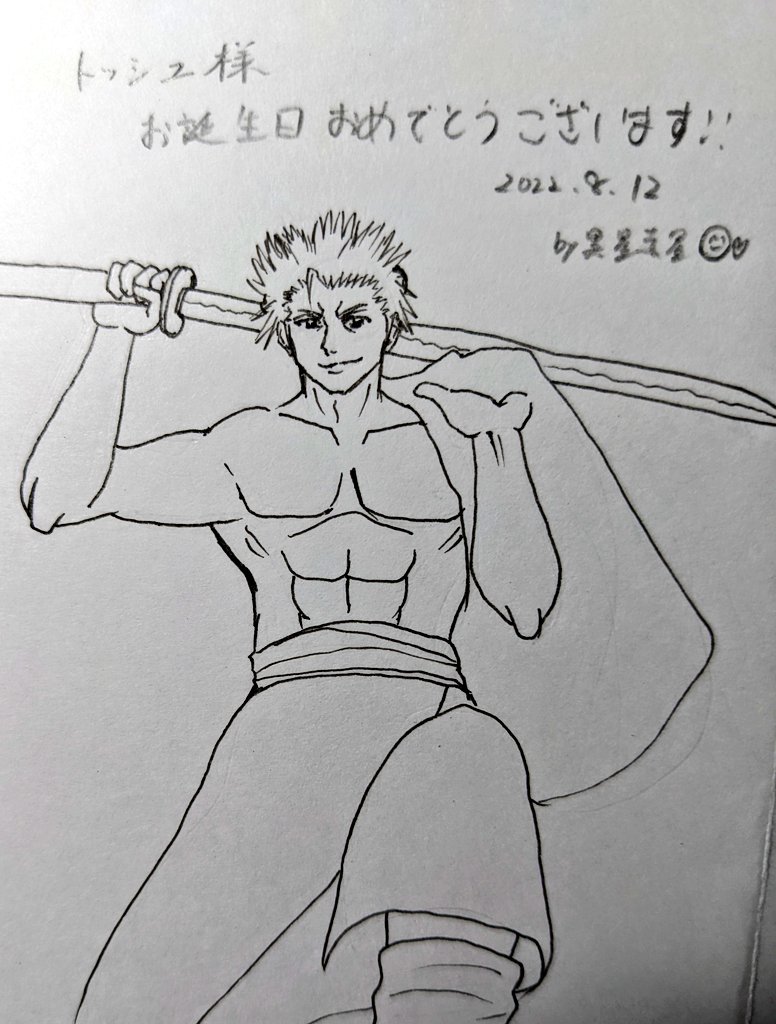 トッシュ様
お誕生日 おめでとうございます!!
2022.8.12
by 黒星